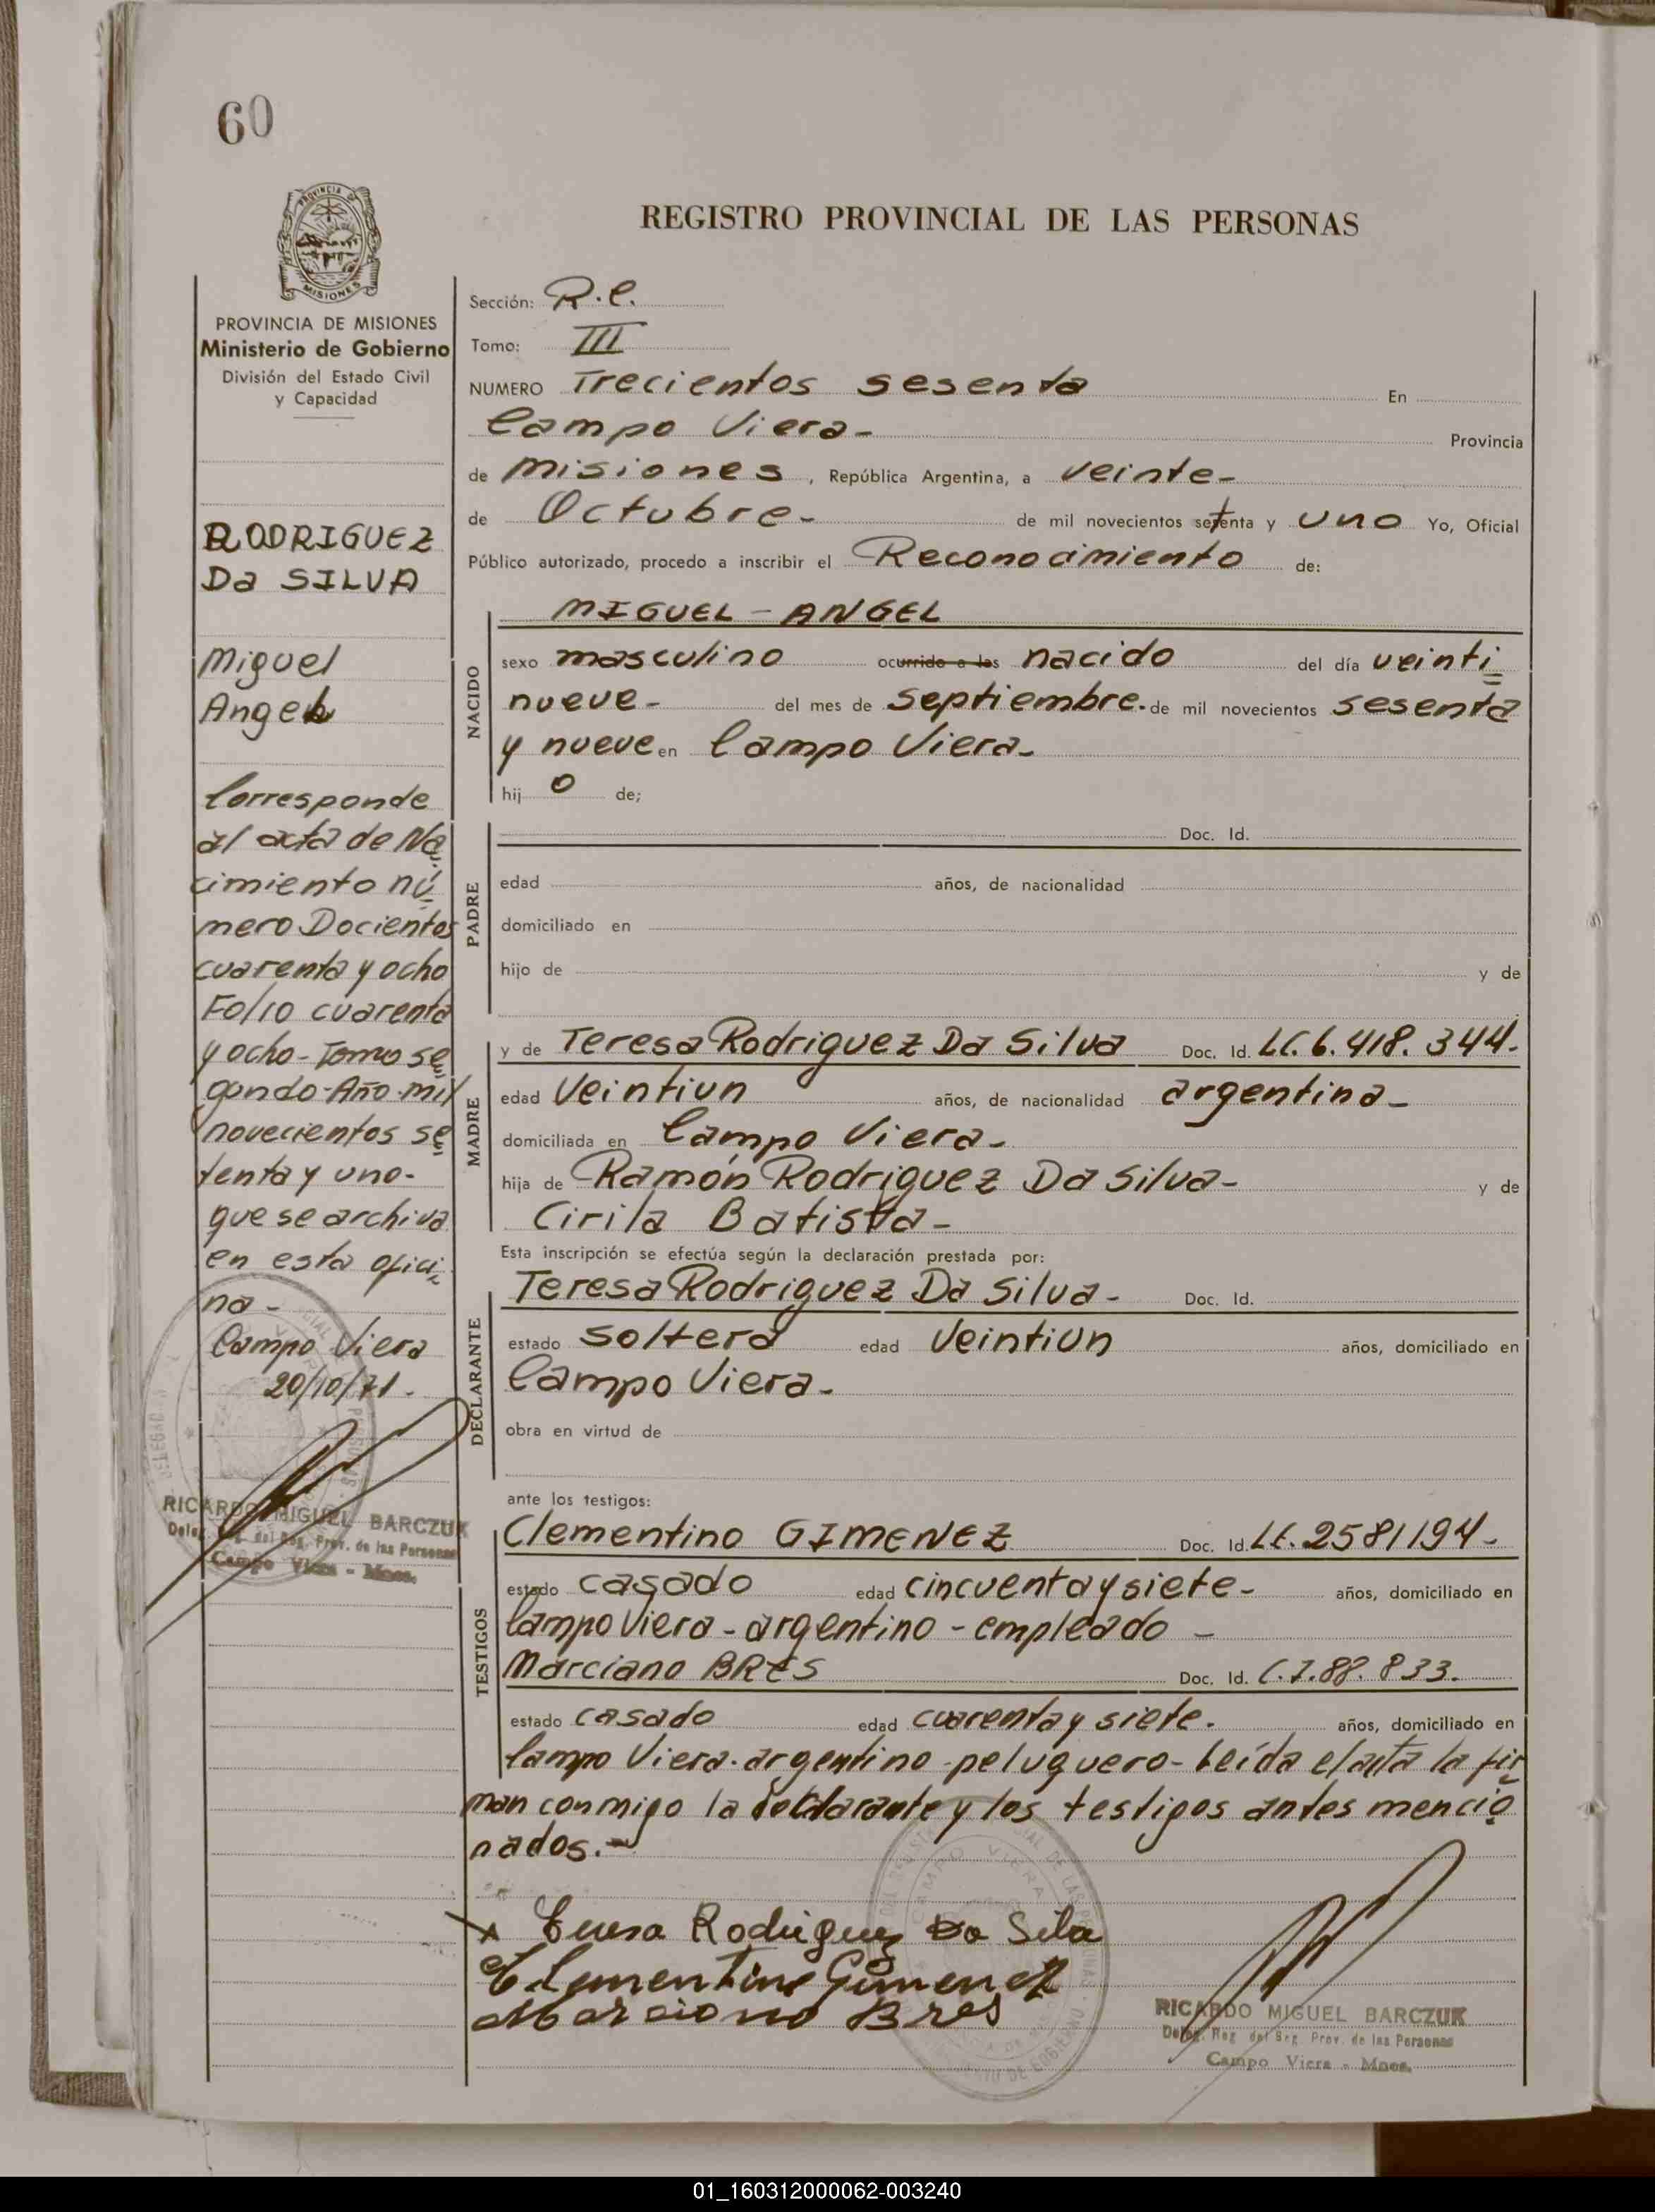 60
PROVINCIA DE MISIONES
REGISTRO PROVINCIAL DE LAS PERSONAS
PROVINCIA DE MISIONES
Ministerio de Gobierno
División del Estado Civil
y Capacidad
RODRIGUEZ
Da SILVA
Miguel
Angel
Corresponde
al acta de Na
cimiento nú
mero Docientos
cuarenta y ocho
Folio cuarenta
y ocho - Tomo se
gundo - Año - mil
novecientos se
tenta y uno -
que se archiva
en esta ofici
na -
Campo Viera
20/10/71.
RICARDO MIGUEL BARCZUK
Deleg. Reg. del Reg. Prov. de las Personas
Campo Viera - Mnes.
Sección: R.C.
Tomo: III
NUMERO Trecientos sesenta En
Campo Viera - Provincia
de misiones, República Argentina, a veinte -
de Octubre - de mil novecientos setenta y uno Yo, Oficial
Público autorizado, procedo a inscribir el Reconocimiento de:
NACIDO
MIGUEL - ANGEL
sexo masculino ocurrido a las nacido del día veinti
nueve - del mes de septiembre. de mil novecientos sesenta
y nueve en Campo Viera -
hij o de;
PADRE
Doc. Id.
edad años, de nacionalidad
domiciliado en
hijo de y de
MADRE
y de Teresa Rodriguez Da Silva Doc. Id. LC. 6.418.344.
edad Veintiun años, de nacionalidad argentina -
domiciliada en Campo Viera -
hija de Ramón Rodriguez Da Silva - y de
Cirila Batista -
Esta inscripción se efectúa según la declaración prestada por:
DECLARANTE
Teresa Rodriguez Da Silva - Doc. Id.
estado soltera edad Veintiun años, domiciliado en
Campo Viera -
obra en virtud de
ante los testigos:
TESTIGOS
Clementino GIMENEZ Doc. Id. LE. 2581194 -
estado casado edad cincuenta y siete - años, domiciliado en
Campo Viera - argentino - empleado -
Marciano BRES Doc. Id. C.I. 88.833.
estado casado edad cuarenta y siete. años, domiciliado en
Campo Viera - argentino - peluquero - Leída el acta la fir
man conmigo la declarante y los testigos antes mencio
nados. -
x Teresa Rodriguez Da Silva
Clementino Gimenez
Marciano Bres
RICARDO MIGUEL BARCZUK
Deleg. Reg. del Reg. Prov. de las Personas
Campo Viera - Mnes.
01_160312000062-003240